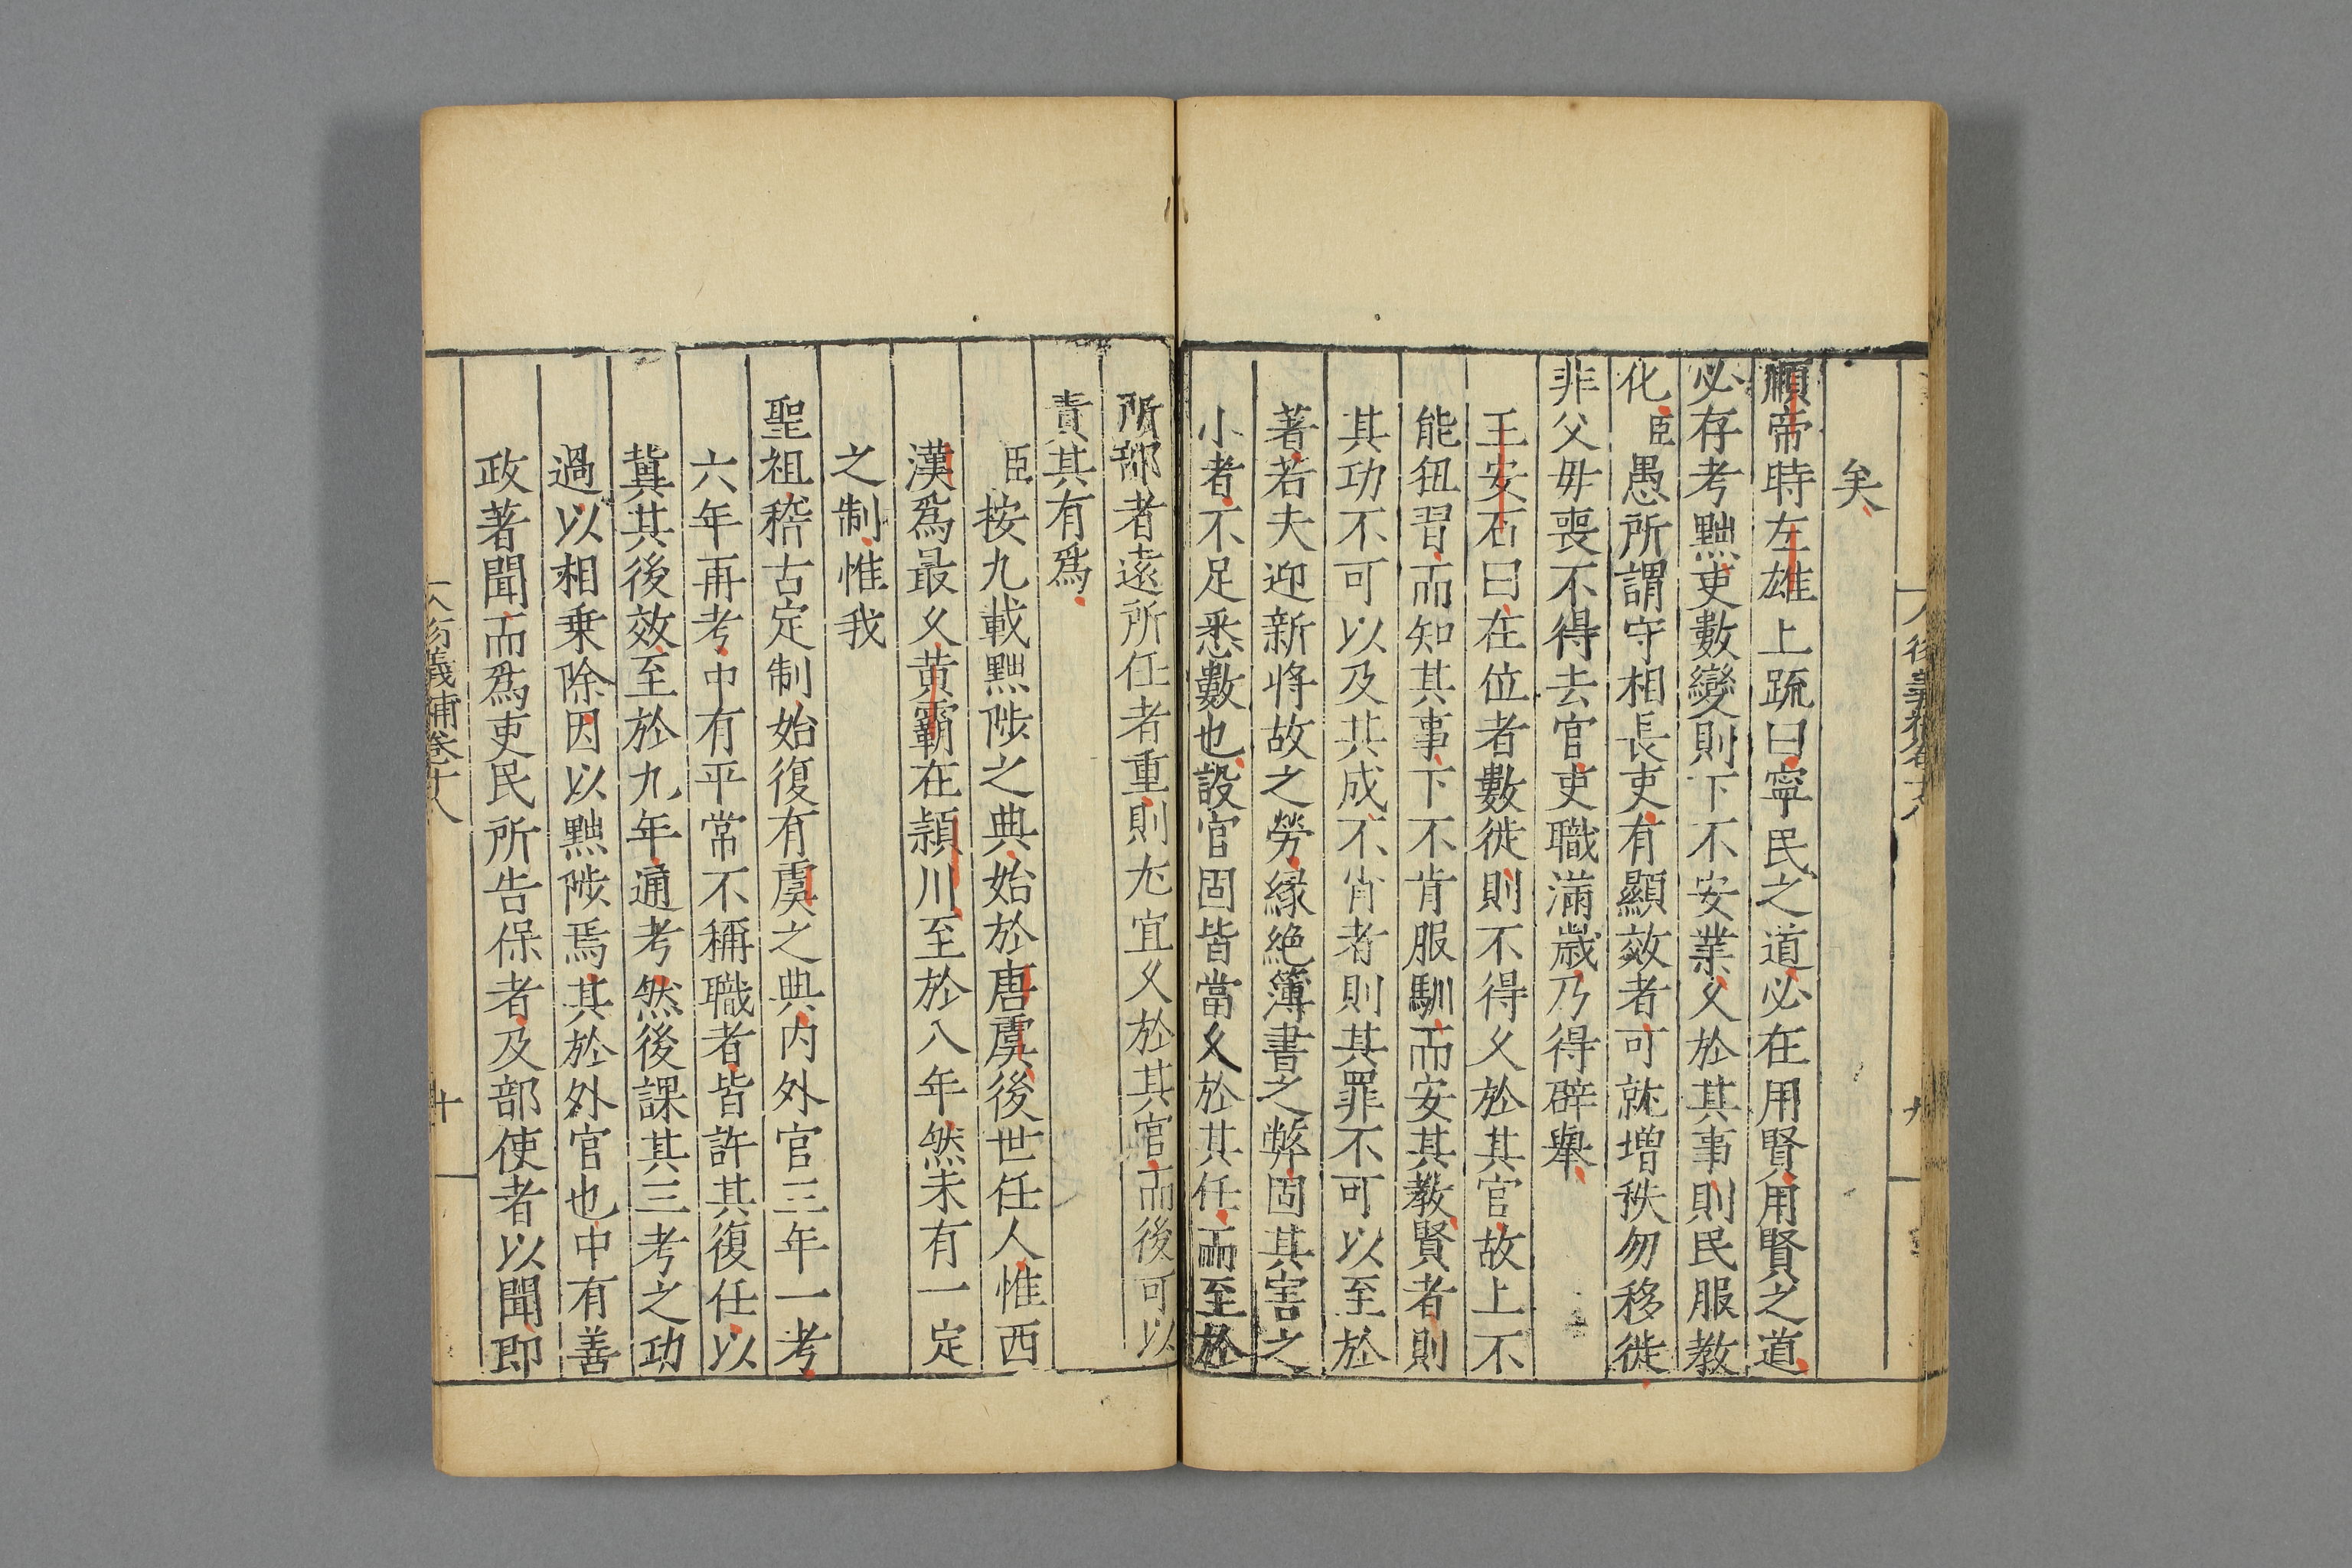 矣
順帝時左雄上疏曰寧民之道必在用賢用賢之道
必存考黜吏數變則下不安業久於其事則民服教
化臣愚所謂守相長吏有顯效者可就增秩勿移徙
非父毋喪不得去官吏職滿歲乃得辟舉
王安石曰在位者數徙則不得久於其官故上不
能狃習而知其事下不肯服馴而安其教賢者則
其功不可以及其成不肖者則其罪不可以至於
著若夫迎新將故之勞緣絶簿書之弊固其害之
小者不足悉數也設官固皆當久於其任而至於
所部者遠所任者重則尤宜久於其官而後可以
責其有爲
臣按九載黜陟之典始於唐虞後世任人惟西
漢爲最久黄霸在潁川至於八年然未有一定
之制惟我
聖祖稽古定制始復有虞之典内外官三年一考
六年再考中有平常不稱職者皆許其復任以
冀其後效至於九年通考然後課其三考之功
過以相乗除因以黜陟焉其於外官也中有善
政著聞而爲吏民所告保者及部使者以聞即
義補卷十八
十